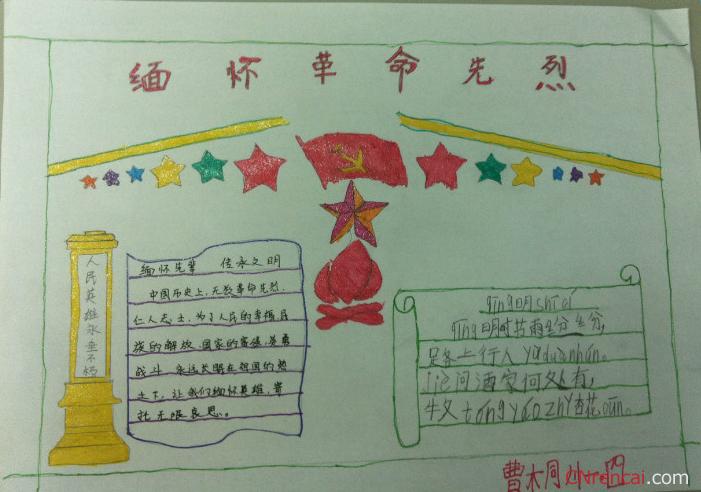 缅怀革命先烈
人民英雄永垂不朽
缅怀先辈 传承文明
中国历史上,无数革命先烈.
仁人志士,为了人民的幸福民
族的解放、国家的富强、英勇
战斗 永远长眠在祖国的热
土下,让我们缅怀英雄,寄
托无限哀思。
qīng明shī
明时节雨分分,
路上行人yùduànhún。
问酒家何处有,
牧tóng yáo zhǐ杏花cūn。
曹
CNrencai.com